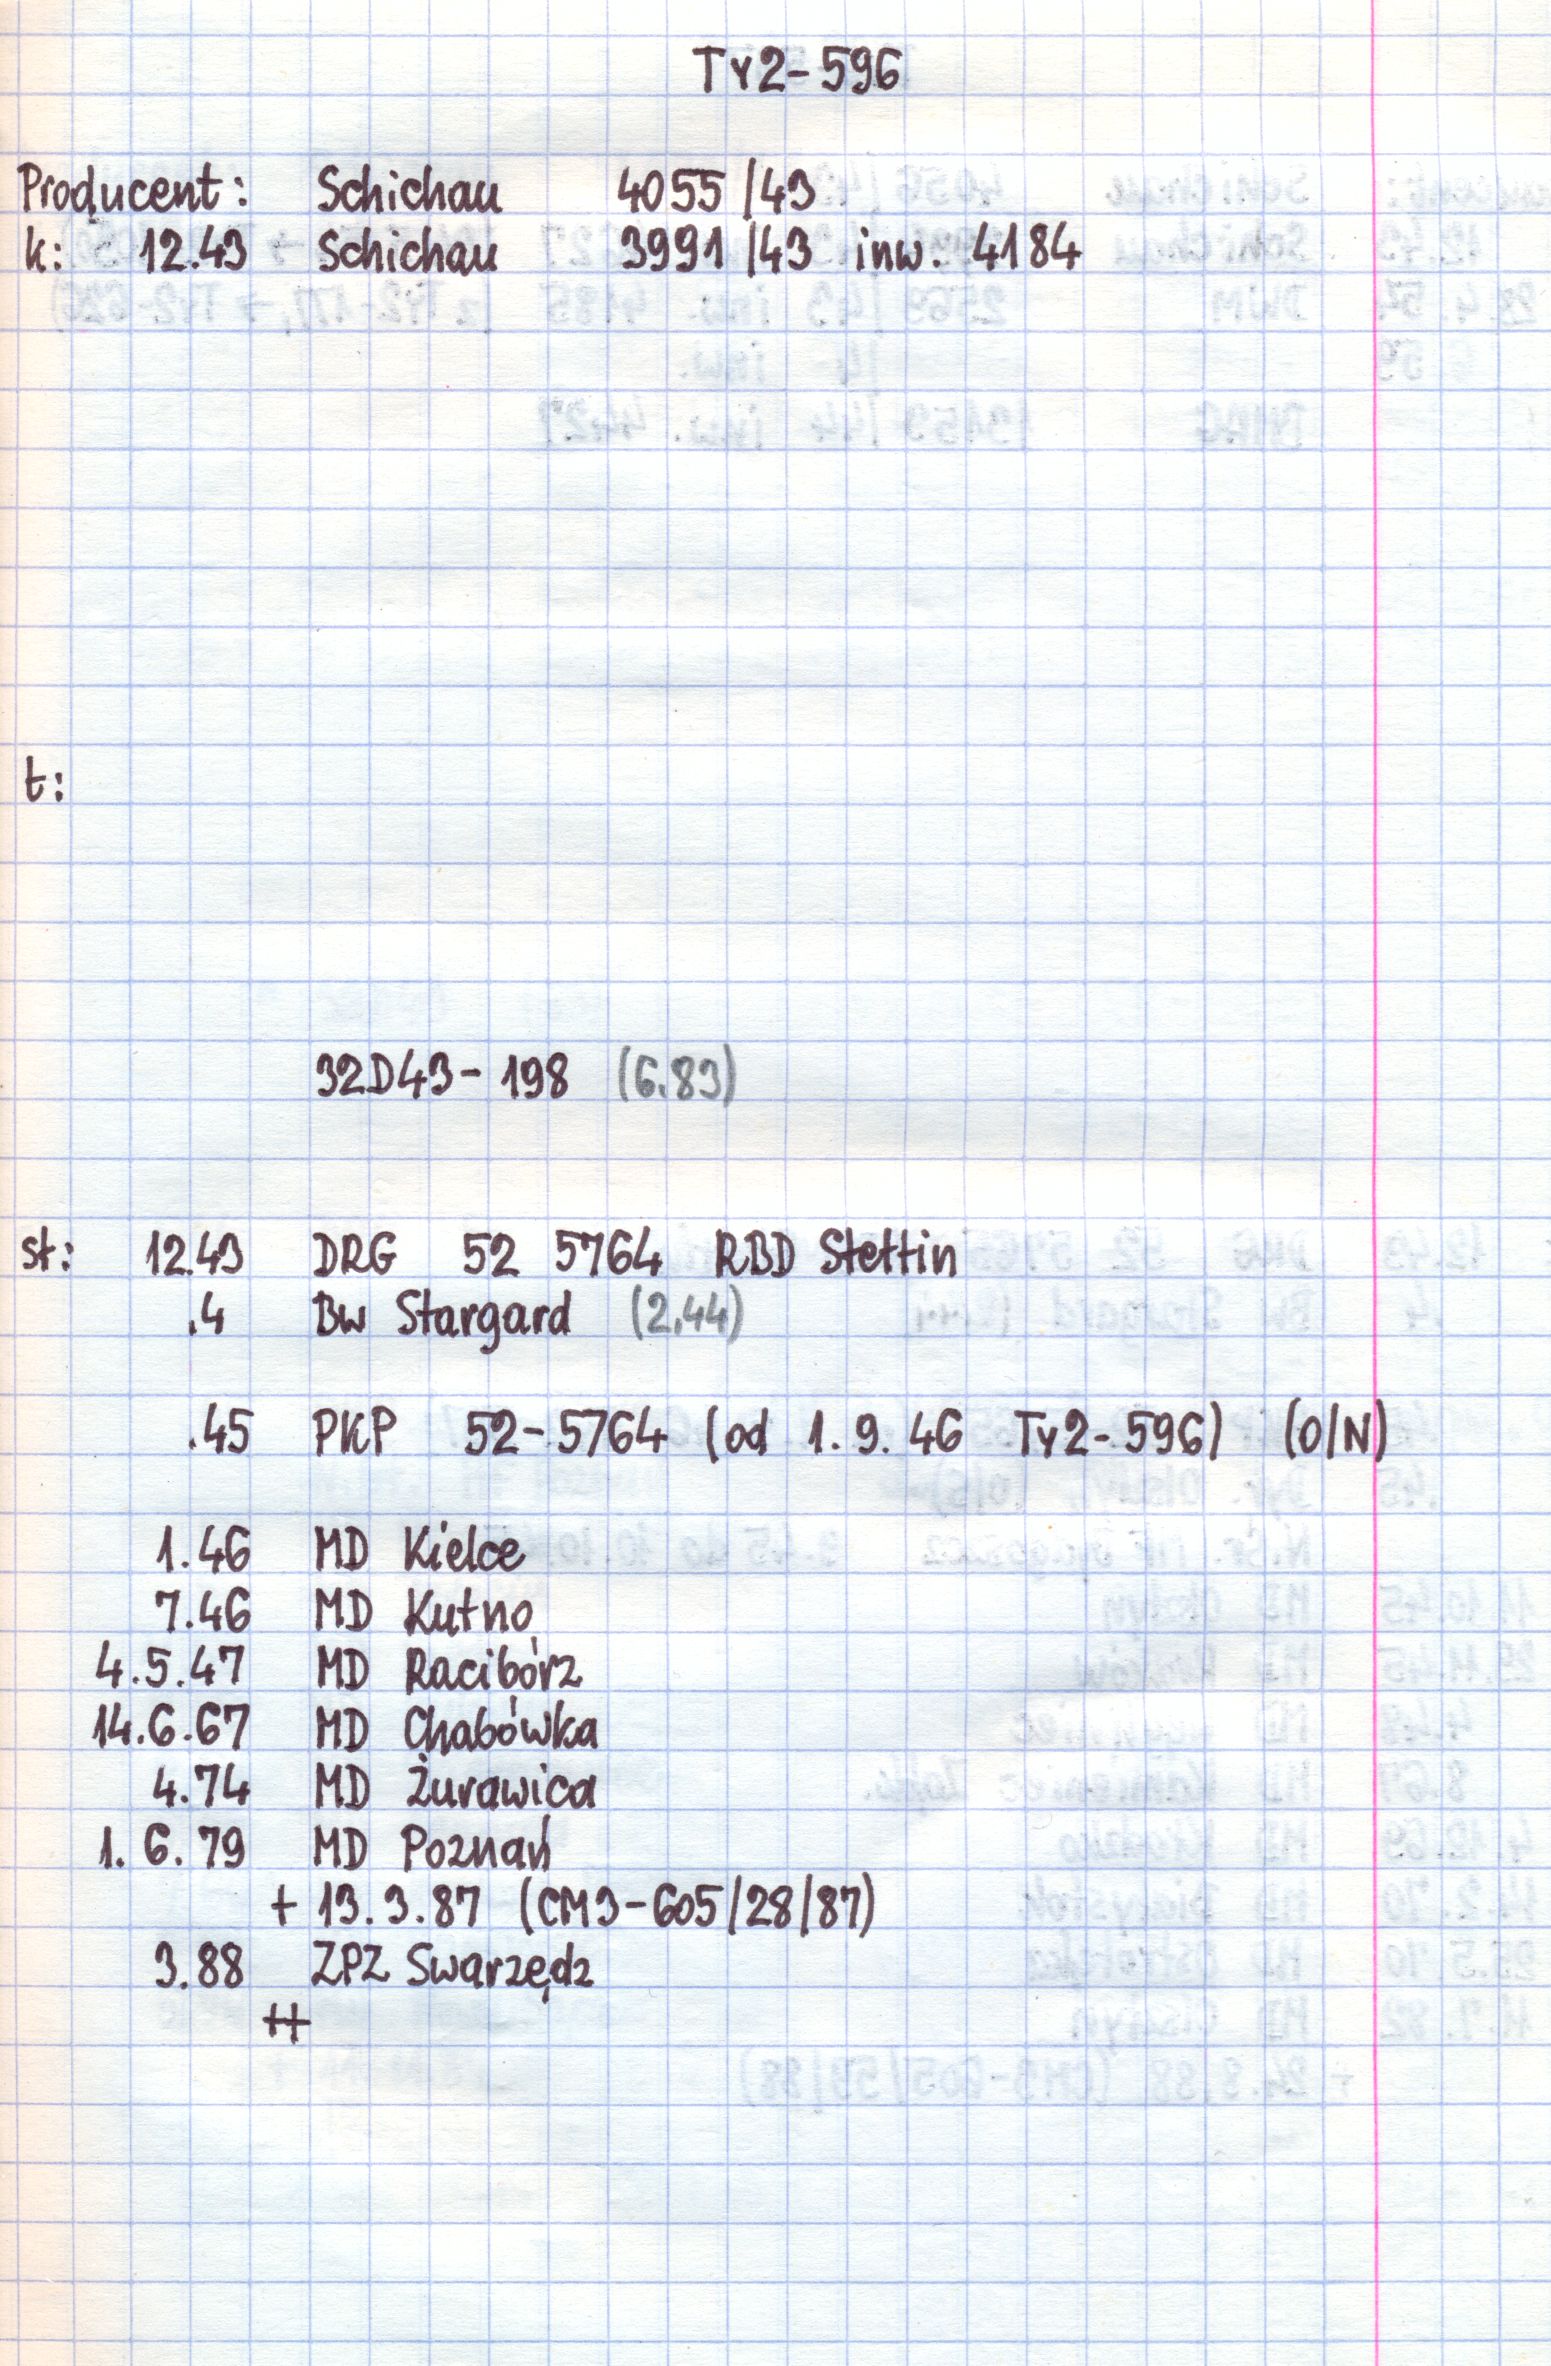 Ty2-596
Producent: Schichau 4055/43
k: 12.43 Schichau 3991/43 inw. 4184
t:
32D43-198 (6.83)
st: 12.43 DRG 52 5764 RBD Stettin
.4 Bw Stargard (2.44)
.45 PKP 52-5764 (od 1.9.46 Ty2-596) (O/N)
1.46 MD Kielce
7.46 MD Kutno
4.5.47 MD Racibórz
14.6.67 MD Chabówka
4.74 MD Żurawica
1.6.79 MD Poznań
+ 13.3.87 (CM3-605/28/87)
3.88 ZPZ Swarzędz
++